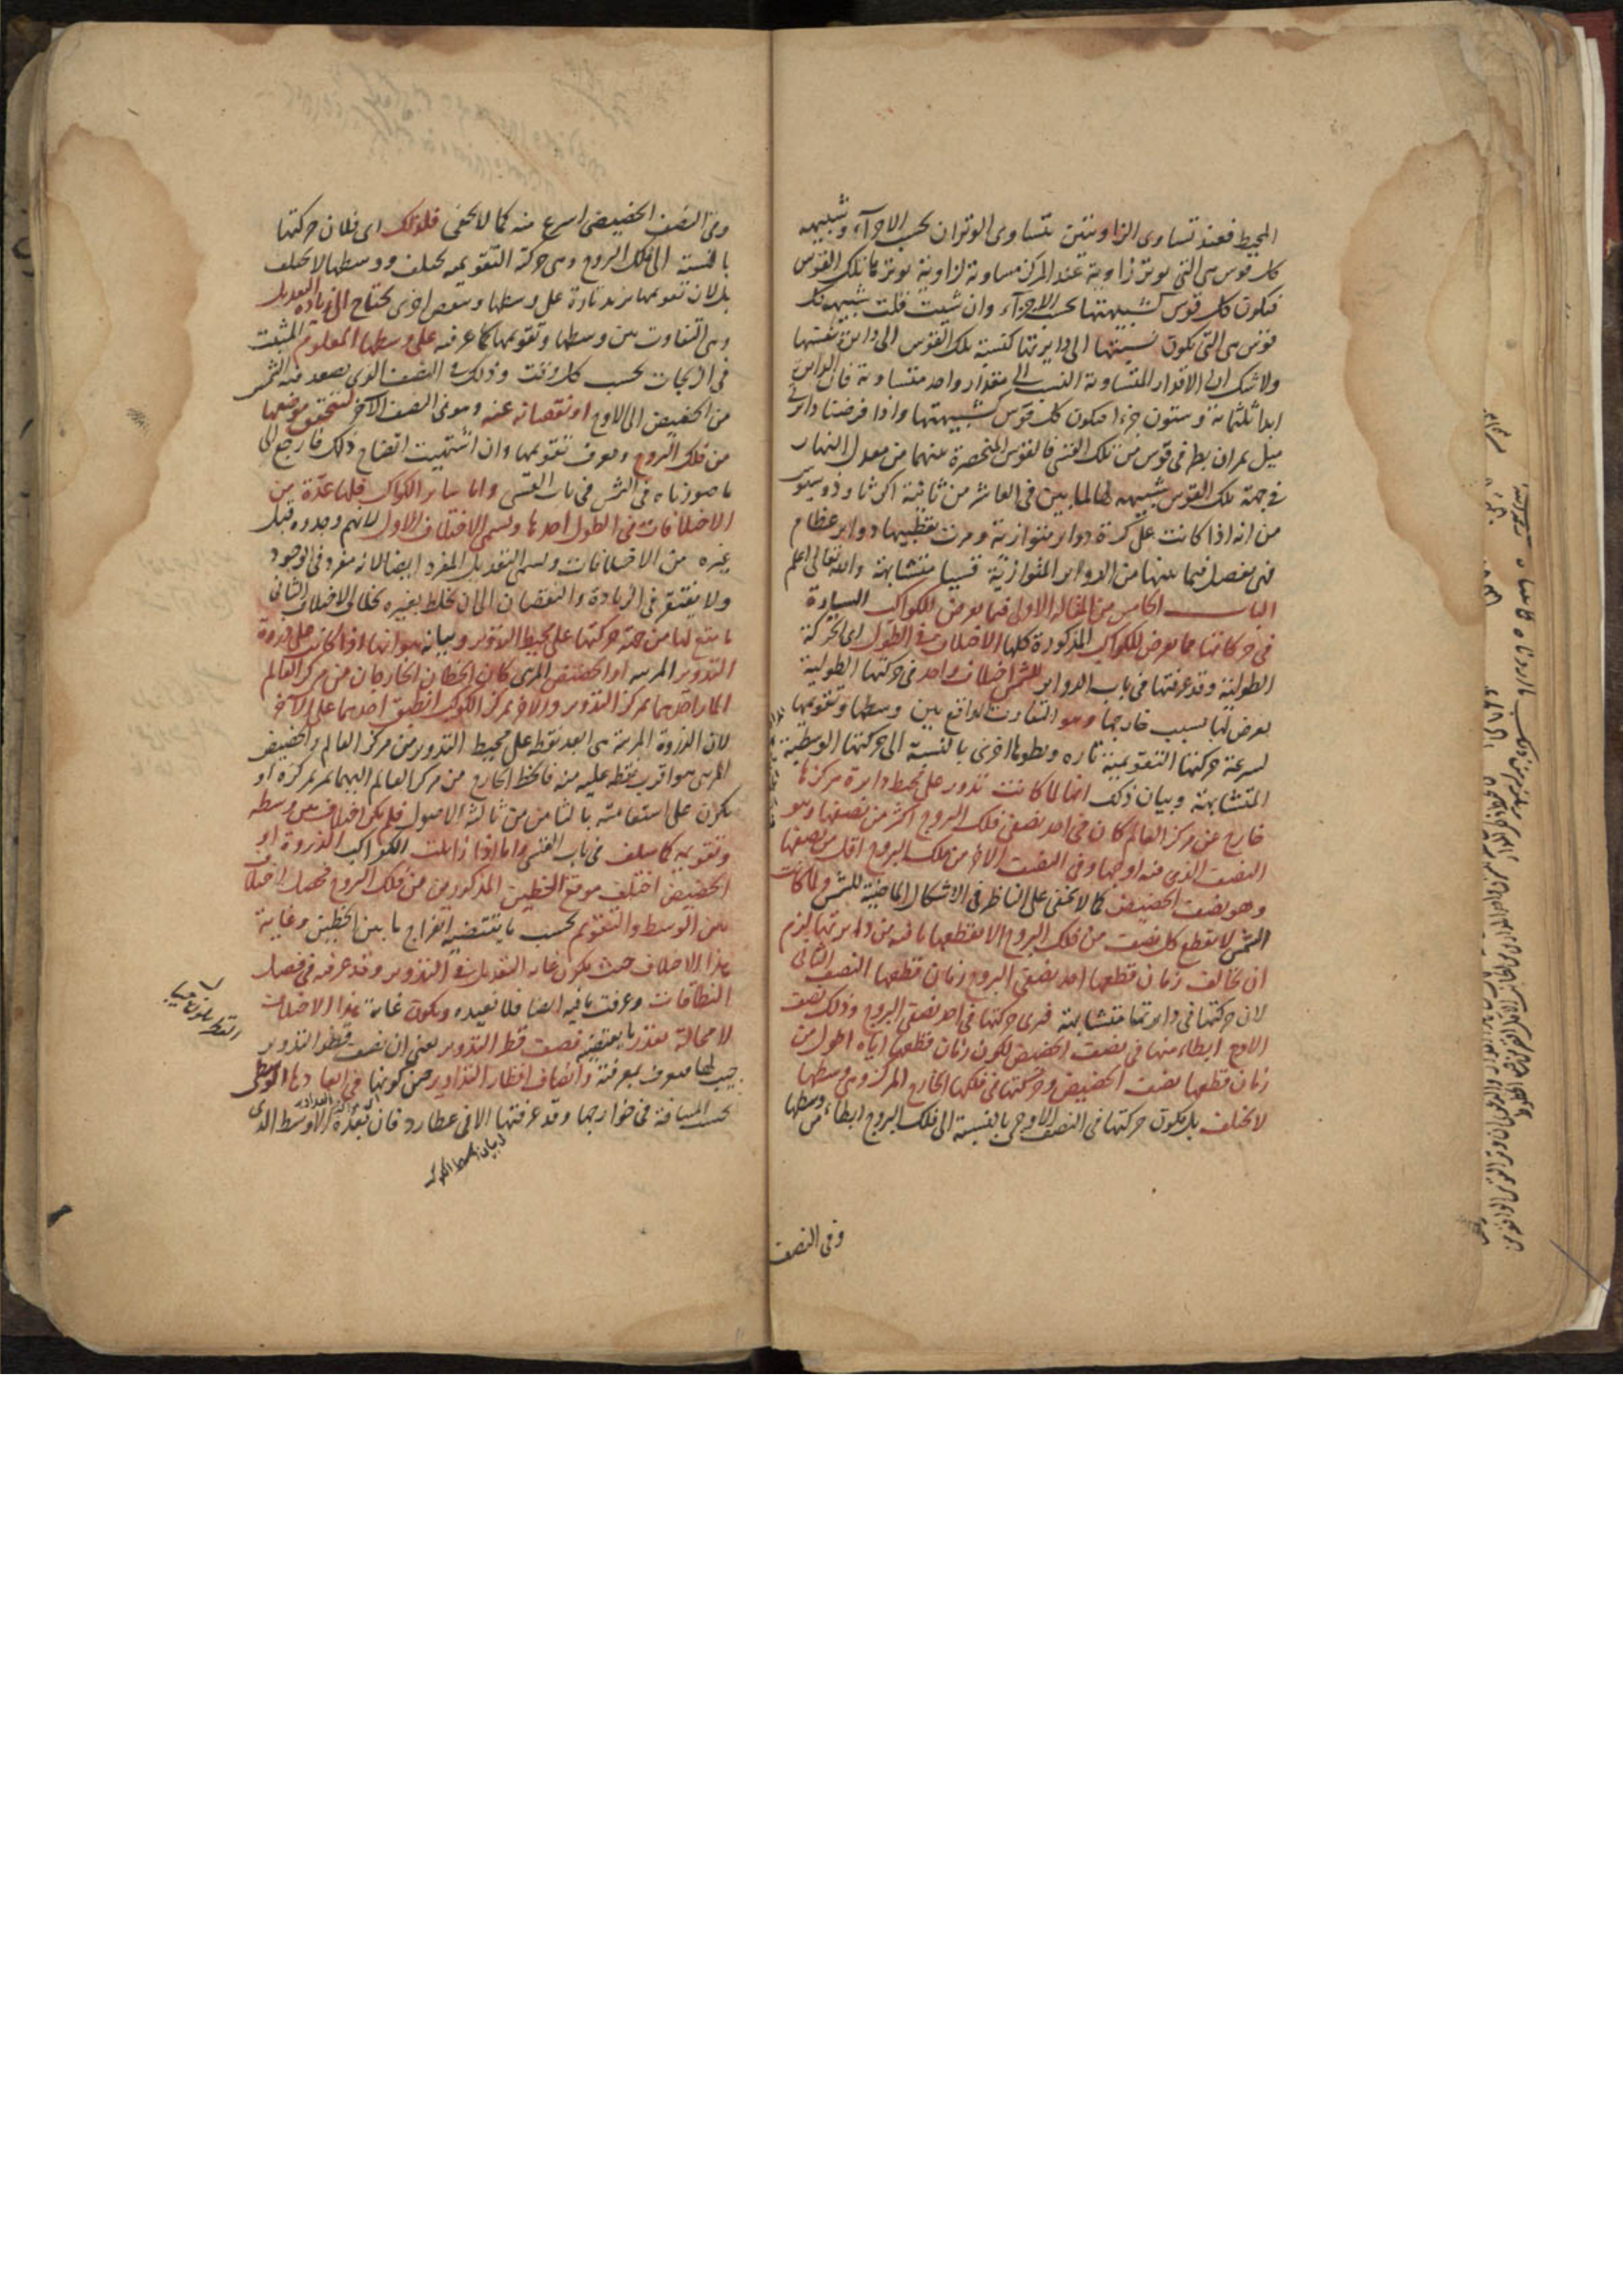 المحيط فعند تساوى الزاويتين يتساوى الوتران بحسب الاجزآء وشبيهه
كل قوس هى التى يوتر زاوية عند المركز مساوية لزاوية يوترها تلك القوس
فيكون كل قوس كشبيهتها بحسب الاجزآء وان شيت قلت شبيهه كل
قوس هى التى يكون نسبتها الى دايرتها كنسبة تلك القوس الى دايرة نفسها
ولا شك ان الاقدار المتساوية النسب الى مقدار واحد متساوية فان الداير
ابدا ثلثماية وستون جزءا فيكون كل قوس كشبيهتها واذا فرضنا دايرتى
ميل يمران بطرفى قوس من تلك القسى فالقوس المنحصرة بينهما من معدل النهار
فى جهة تلك القوس شبيهه لها لما بين فى العاشر من ثانية اكر ثاوذوسيوس
من انه اذا كانت على كرة دواير متوازية ومرت بقطبيها دواير عظام
فهى يفصل فيما بينها من الدواير المتوازية قسيا متشابهة والله تعالى اعلم
الباب الخامس من المقالة الاولى فيما يعرض للكواكب السيارة
فى حركاتها مما يعرض للكواكب المذكورة كلها الاختلاف فى الطول اى الحركة
الطولية وقد عرفتها فى باب الدواير للشمس اختلاف واحد فى حركتها الطولية
يعرض لها بسبب خارجها وهو التفاوت الواقع بين وسطها وتقويمها
لسرعة حركتها التقويمية تارة وبطوها اخرى بالنسبة الى حركتها الوسطية
المتشابهة وبيان ذلك انها لما كانت تدور على محيط دايرة مركزها
خارج عن مركز العالم كان فى احد نصفى فلك البروج اكثر من نصفها وهو
النصف الذى فيه اوجها وفى النصف الاخر من فلك البروج اقل من نصفها
وهو نصف الحضيض كما لا يخفى على الناظر فى الاشكال الماضية للشمس ولما كانت
الشمس لا يقطع كل نصف من فلك البروج الا بقطعها ما فيه من دايرتها لزم
ان يخالف زمان قطعها احد نصفى البروج زمان قطعها النصف الثانى
لان حركتها فى دايرتها متشابهة فيرى حركتها فى احد نصفى البروج وذلك نصف
الاوج ابطاء منها فى نصف الحضيض لكون زمان قطعها اياه اطول من
زمان قطعها نصف الحضيض وحركتها فى فلكها الخارج المركز وهى وسطها
لا يختلف بل يكون حركتها فى النصف الاوجى بالنسبة الى فلك البروج ابطاء من وسطها
وفى النصف
وفى النصف الحضيضى اسرع منه كما لا يخفى فلذلك اى فلان حركتها
بالنسبة الى فلك البروج وهى حركة التقويمية يختلف ووسطها لا يختلف
بل لان تقويمها يزيد تارة على وسطها وينقص اخرى يحتاج الى زيادة التعديل
وهى التفاوت بين وسطها وتقويمها كما عرفته على وسطها المعلوم المثبت
فى الزيجات بحسب كل وقت وذلك فى النصف الذى يصعد فيه الشمس
من الحضيض الى الاوج او نقصانه عنه وهو فى النصف الآخر ليتحقق موضعها
من فلك البروج ويعرف تقويمها وان اشتهيت ايضاح ذلك فارجع الى
ما صورناه فى الشمس فى باب القسى واما ساير الكواكب فلها عدة من
الاختلافات فى الطول احدها ويسمى الاختلاف الاول لانهم وجدوه قبل
غيره من الاختلافات ويسمى التعديل المفرد ايضا لانه مفرد فى الوجود
ولا يفتقر فى الزيادة والنقصان الى ان يخلط بغيره بخلاف الاختلاف الثانى
ما يقع لها من جهة حركتها على محيط التدوير وبيانه هو انها اذا كانت على ذروة
التدوير المرئية او الحضيض المرئى كان الخطان الخارجان من مركز العالم
المار احدهما بمركز التدوير والاخر بمركز الكوكب انطبق احدهما على الآخر
لان الذروة المرئية هى ابعد نقطة على محيط التدوير من مركز العالم والحضيض
المرئى هو اقرب نقطة عليه منه فالخط الخارج من مركز العالم اليهما يمر بمركزه او
يكون على استقامته بالثامن من ثالثة الاصول فلم يكن اختلاف بين وسطه
وتقويمه كما سلف فى باب القسى واما اذا زايلت الكواكب الذروة او
الحضيض اختلف موقع الخطين المذكورين من فلك البروج فحصل اختلاف
بين الوسط والتقويم بحسب ما يقتضيه انفراج ما بين الخطين وغاية
هذا الاختلاف حيث يكون غاية التعديل فى التدوير وقد عرفته فى فصل
النطاقات وعرفت ما فيه ايضا فلا نعيده ويكون غاية هذا الاختلاف
لا محالة بقدر ما يقتضيه نصف قطر التدوير يعنى ان نصف قطر التدوير
جيب لها فيعرف بمعرفته وانصاف اقطار التداوير حين كونها فى ابعادها الاوسط
بحسب المسافة فى خوارجها وقد عرفتها الا فى عطارد فان بعده الاوسط الذى